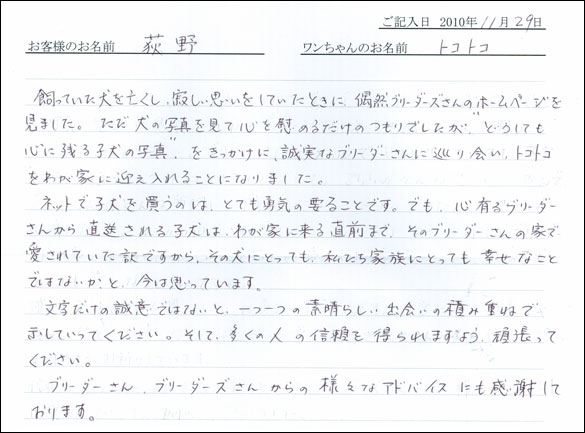 ご記入日 2010年11月29日
お客様のお名前 荻野 ワンちゃんのお名前 トコトコ
飼っていた犬を亡くし、寂しい思いをしていたときに、偶然ブリーダーズさんのホームページを
見ました。ただ犬の写真を見て心を慰めるだけのつもりでしたが、"どうしても
心に残る子犬の写真"をきっかけに、誠実なブリーダーさんに巡り会い、トコトコ
をわが家に迎え入れることになりました。
ネットで子犬を買うのは、とても勇気の要ることです。でも、心有るブリーダー
さんから直送される子犬は、わが家に来る直前まで、そのブリーダーさんの家で
愛されていた訳ですから、その犬にとっても、私たち家族にとっても幸せなこと
ではないか、と、今は思っています。
文字だけの誠意ではないと、一つ一つの素晴らしい出会いの積み重ねで
示していってください。そして、多くの人の信頼を得られますよう、頑張って
ください。
ブリーダーさん、ブリーダーズさんからの様々なアドバイスにも感謝して
おります。